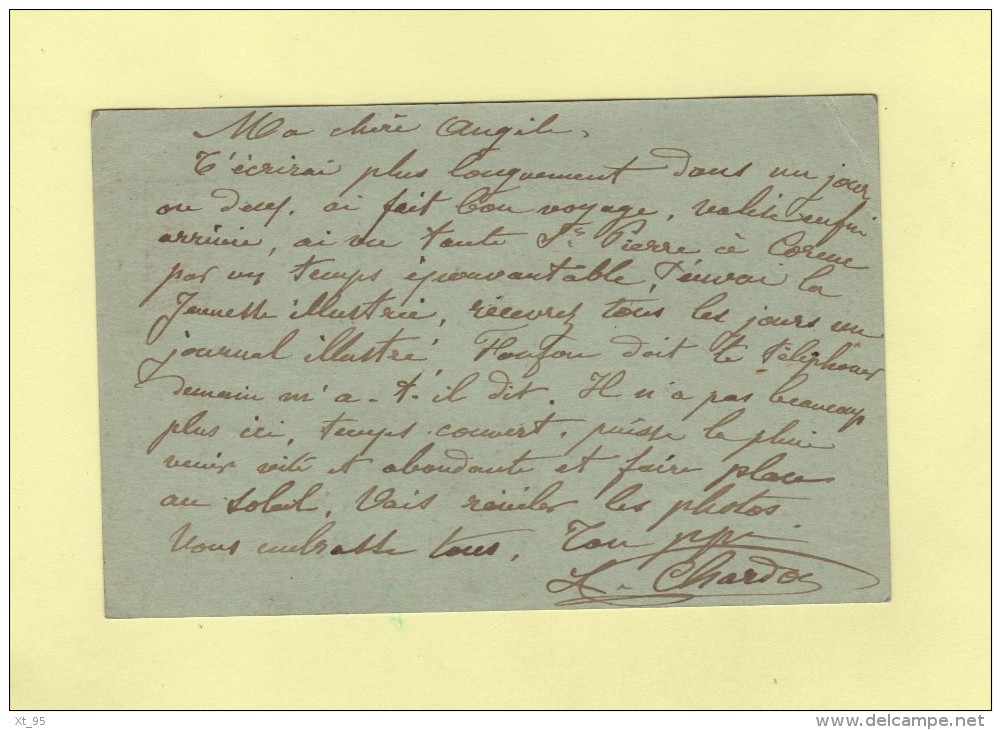 Ma chère Angèle,
T'écrirai plus longuement dans un jour
ou deux, ai fait bon voyage, valise enfin
arrivée, ai vu tante St Pierre à
par un temps épouvantable, t'envoi la
Jeunesse illustrée, recevrez tous les jours un
journal illustré Fonfon doit te téléphoner
demain m'a-t-il dit. Il n'a pas beaucoup
plus ici, temps couvert, puisse la pluie
venir vite et abondante et faire place
au soleil. Vais réviler les photos
Vous embrasse tous, Ton
Chardo
Xt_95
delcampe.net